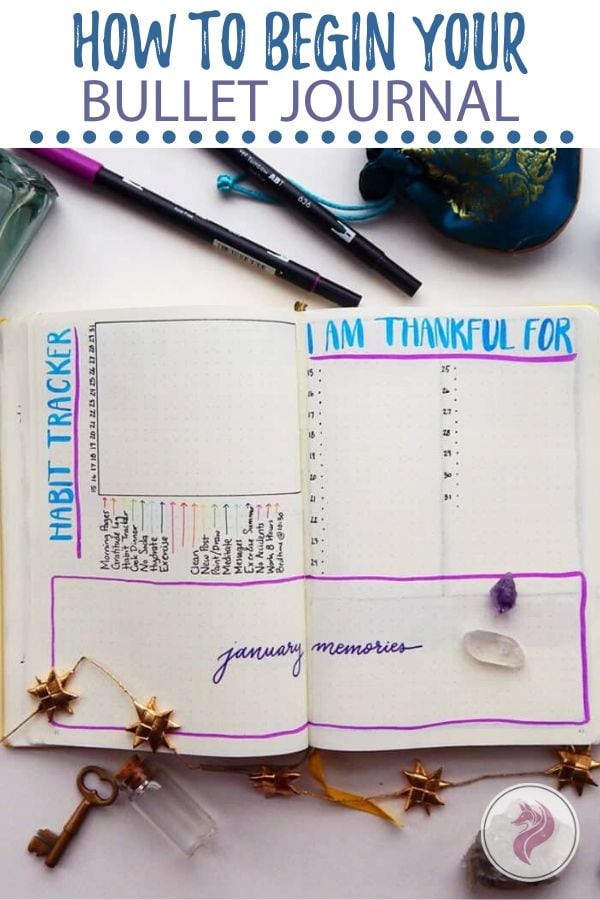 HOW TO BEGIN YOUR
BULLET JOURNAL
ABT
636
HABIT TRACKER
15 16 17 18 19 20 21 22 23 24 25 26 27 28 29 30 31
Morning Pages
Gratitude Log
Habit Tracker
Cook Dinner
No Soda
Hydrate
Exercise
Clean
New Post
Paint/Draw
Meditate
Messages
Exercise Summer
No Accidents
Work 8 Hours
Bedtime @ 10:30
I AM THANKFUL FOR
15
16
17
18
19
20
21
22
23
24
25
26
27
28
29
30
31
january memories